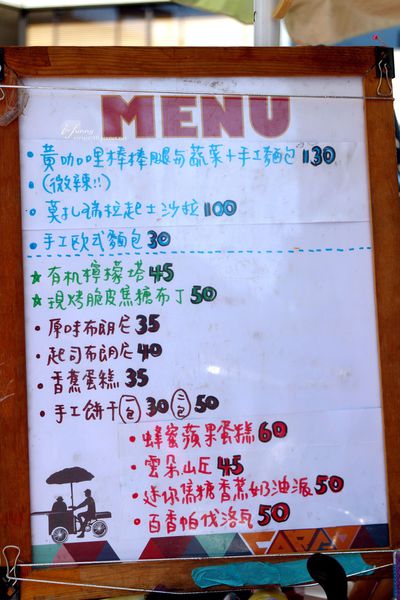 MENU
Jenny
• 黃咖哩棒棒腿与蔬菜+手工麵包 130
• (微辣!!)
• 莫扎瑞拉起士沙拉 100
• 手工歐式麵包 30
★ 有机檸檬塔 45
★ 現烤脆皮焦糖布丁 50
• 原味布朗尼 35
• 起司布朗尼 40
• 香蕉蛋糕 35
• 手工餅干 一包 30 二包 50
• 蜂蜜蘋果蛋糕 60
• 雲朵山丘 45
• 迷你焦糖香蕉奶油派 50
• 百香帕伐洛瓦 50